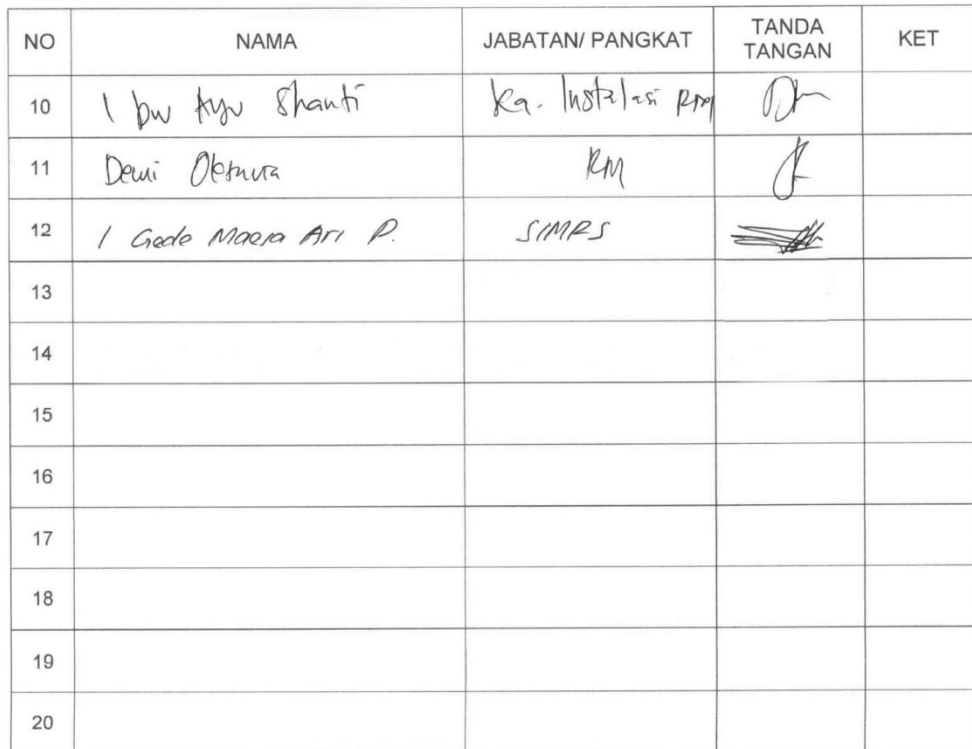 NO NAMA JABATAN/ PANGKAT TANDA TANGAN KET
10 I bw Ayu Shanti Ka. Instalasi RM
11 Dewi RM
12 I Gede Ari P. SIMRS
13
14
15
16
17
18
19
20